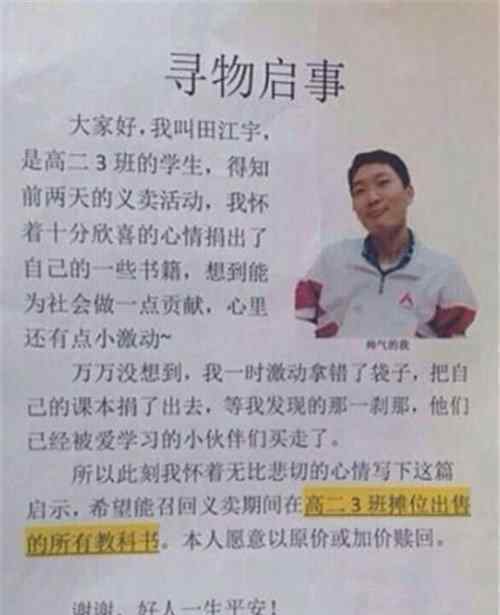 寻物启事
大家好，我叫田江宇，
是高二3班的学生，得知
前两天的义卖活动，我怀
着十分欣喜的心情捐出了
自己的一些书籍，想到能
为社会做一点贡献，心里
还有点小激动~
帅气的我
万万没想到，我一时激动拿错了袋子，把自
己的课本捐了出去，等我发现的那一刹那，他们
已经被爱学习的小伙伴们买走了。
所以此刻我怀着无比悲切的心情写下这篇
启示，希望能召回义卖期间在高二3班摊位出售
的所有教科书。本人愿意以原价或加价赎回。
谢谢，好人一生平安！